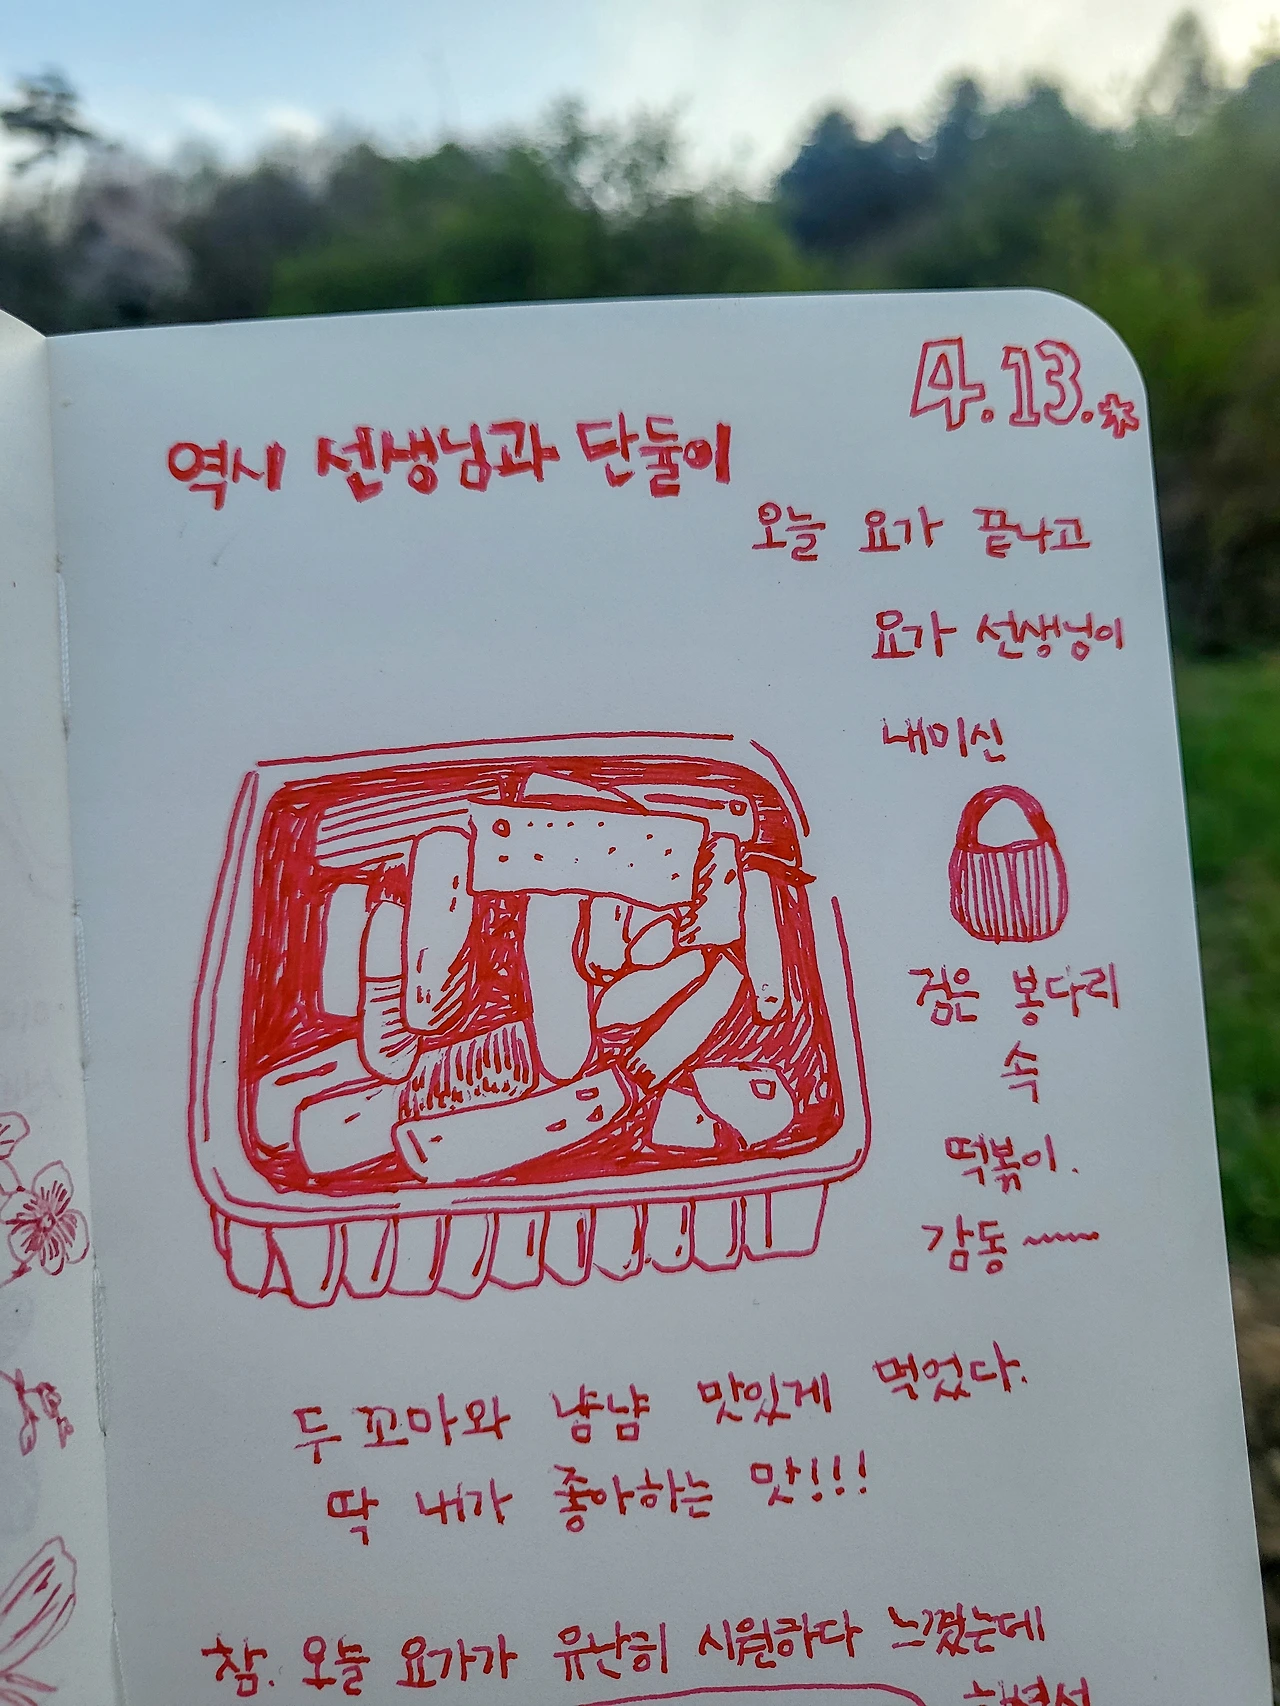 4.13.
역시 선생님과 단둘이
오늘 요가 끝나고
요가 선생님이
내미신
검은 봉다리
속
떡볶이.
감동~~~
두 꼬마와 냠냠 맛있게 먹었다.
딱 내가 좋아하는 맛!!!
참. 오늘 요가가 유난히 시원하다 느꼈는데